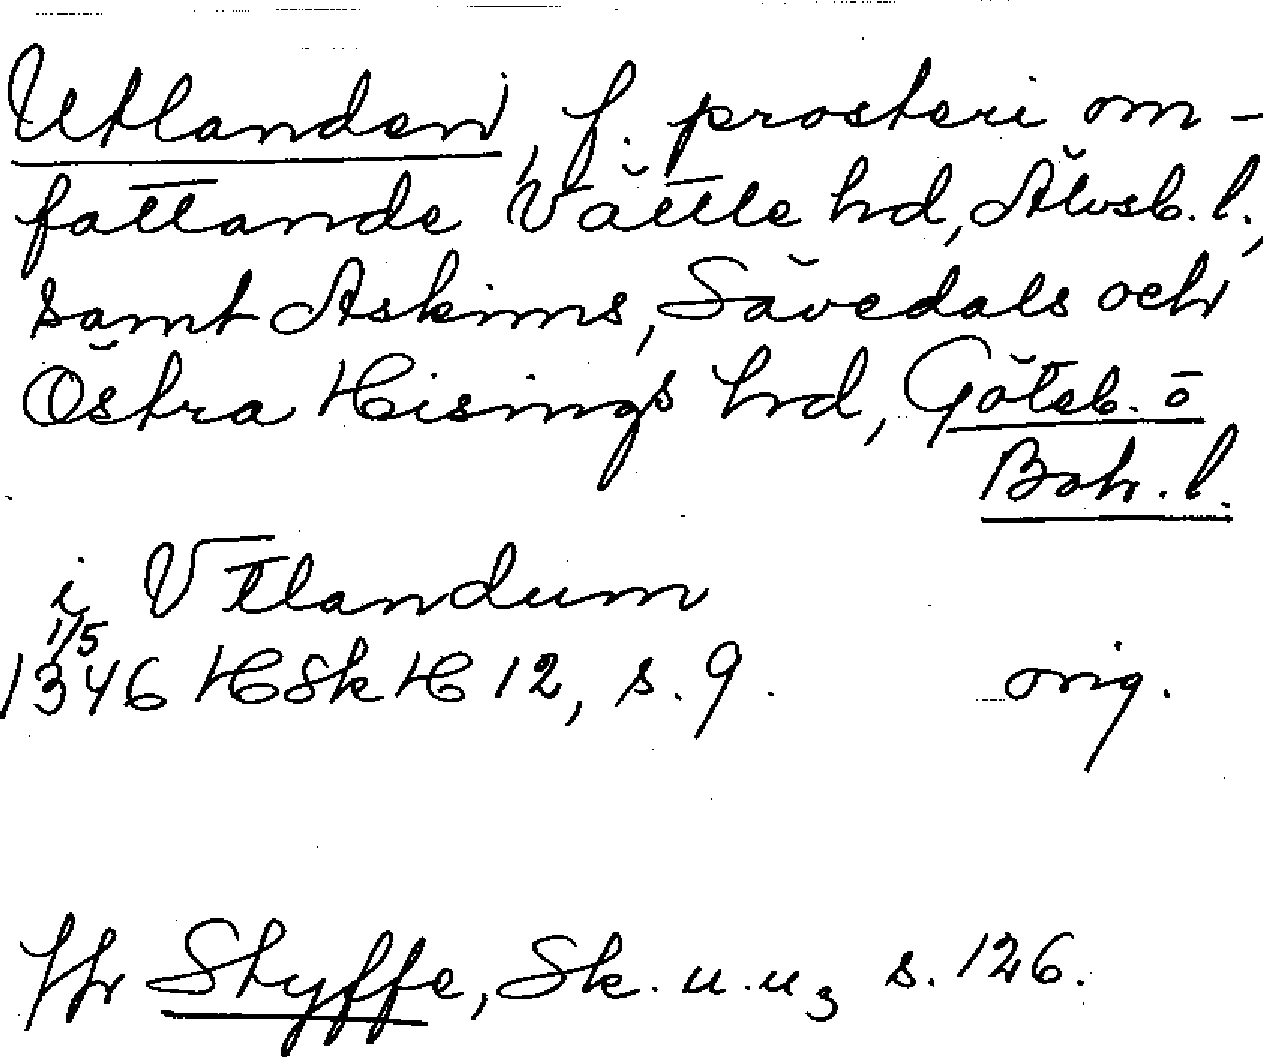 Utlanden, f. prosteri om-
fattande Vättle hd, Älvsb. l.,
samt Askims, Sävedals och
Östra Hisings hd, Göteb. o
Boh. l.
i Vtlandum
1/5
1346 HSkH 12, s. 9. orig.
Jfr Styffe, Sk. u. u3 s. 126.